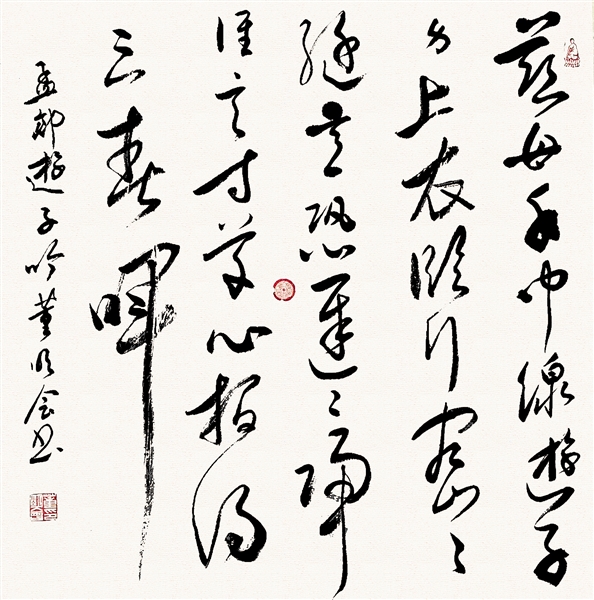 慈母手中線遊子
身上衣臨行密々
縫意恐遲々歸
誰言寸草心報得
三春暉
孟郊遊子吟董明会书